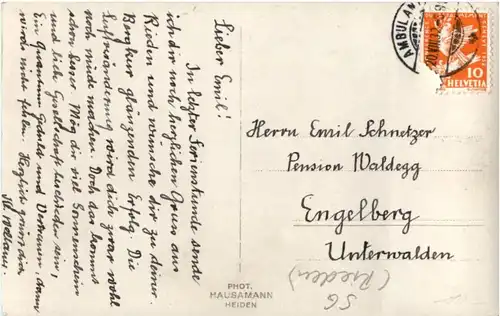 Lieber Emil!
In letzter Ferienstunde sende
ich dir noch herzlichen Gruss aus
Rieden und wünsche dir zu deiner
Bergkur glänzenden Erfolg. Die
Luftveränderung wird dich zwar wohl
noch müde machen. Doch das kommt
schon besser. Mög dir viel Sonnenschein
und liebe Gesellschaft beschieden sein,
Ein Quantum Geduld und Vertrauen, dann
wird nicht fehlen. Herzlich grüsst dich
AMBULANT
20.VIII.
10
HELVETIA
Herrn Emil Schnetzer
Pension Waldegg
Engelberg
Unterwalden
SG
(Rieden)
PHOT.
HAUSAMANN
HEIDEN